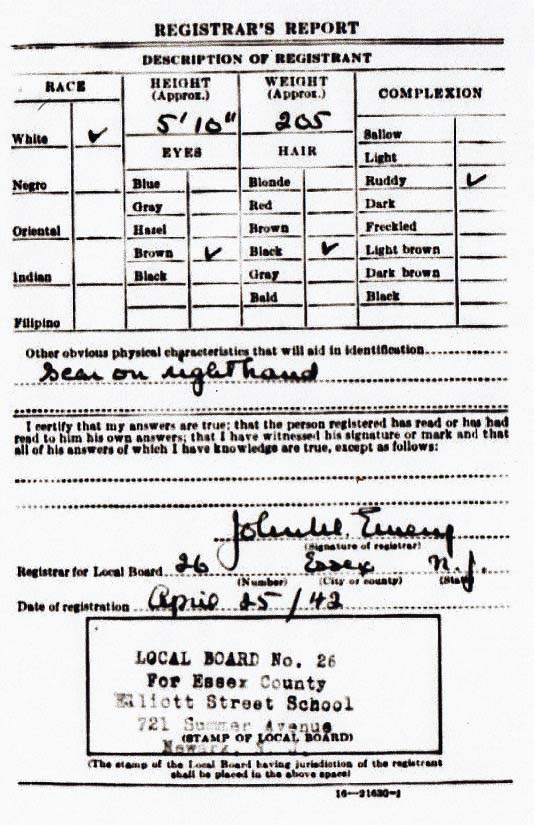 REGISTRAR'S REPORT
DESCRIPTION OF REGISTRANT
RACE
HEIGHT (Approx.)
WEIGHT (Approx.)
COMPLEXION
5' 10"
205
White ✓
EYES
HAIR
Sallow
Light
Negro
Blue
Blonde
Ruddy ✓
Gray
Red
Dark
Oriental
Hazel
Brown
Freckled
Brown ✓
Black ✓
Light brown
Indian
Black
Gray
Dark brown
Bald
Black
Filipino
Other obvious physical characteristics that will aid in identification
Scar on right hand
I certify that my answers are true; that the person registered has read or has had
read to him his own answers; that I have witnessed his signature or mark and that
all of his answers of which I have knowledge are true, except as follows:
John Emery
(Signature of registrar)
Registrar for Local Board 26 Essex N.J.
(Number) (City or county) (State)
Date of registration April 25/42
LOCAL BOARD No. 26
For Essex County
Elliott Street School
721 Summer Avenue
(STAMP OF LOCAL BOARD)
Newark, N. J.
(The stamp of the Local Board having jurisdiction of the registrant
shall be placed in the above space)
16—21630-1